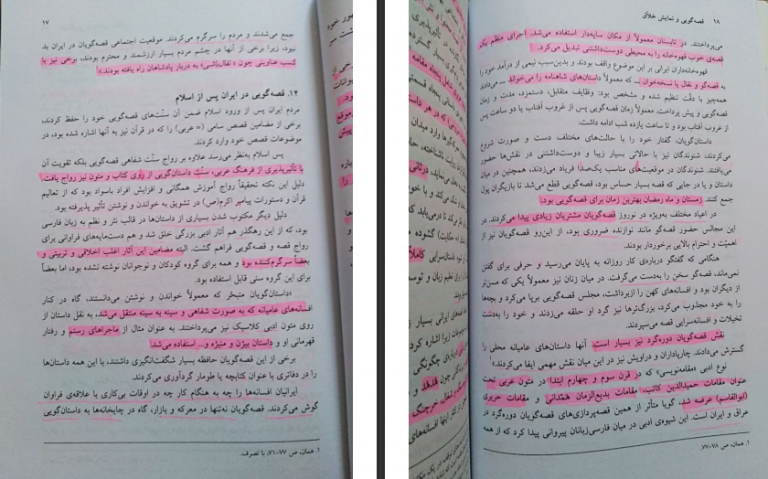 ۱۷
جمع می‌شدند و مردم را سرگرم می‌کردند. موقعیت اجتماعی قصه‌گویان در ایران بد
نبود، زیرا برخی از آنها در چشم مردم بسیار ارزشمند و محترم بودند، برخی نیز با
کسب عناوینی چون «نقال‌باشی» به دربار پادشاهان راه یافته بودند.۱
۱۲. قصه‌گویی در ایران پس از اسلام
مردم ایران پس از ورود اسلام ضمن آن سنّت‌های قصه‌گویی خود را حفظ کردند،
برخی از مضامین قصص سامی (= عربی) را که در قرآن نیز به آنها اشاره شده بود، در
موضوعات قصص خود وارد کردند.
پس اسلام به‌نظر می‌رسد علاوه بر رواج سنّت شفاهی قصه‌گویی بلکه تقویت آن
با تأثیرپذیری از فرهنگ عربی، سنّت داستان‌گویی از روی کتاب و متون نیز رواج یافت.
دلیل این نکته تحقیقاً رواج آموزش همگانی و افزایش افراد باسواد بود که از تعالیم
قرآن و دستورات پیامبر اکرم(ص) در تشویق به خواندن و نوشتن تأثیر پذیرفته بود.
دلیل دیگر مکتوب شدن بسیاری از داستان‌ها در قالب نثر و نظم به زبان فارسی
بود، که از این رهگذر هم آثار ادبی بزرگی خلق شد و هم دست‌مایه‌های فراوانی برای
رواج قصه و قصه‌گویی فراهم گشت. البته مضامین این آثار اغلب اخلاقی و تربیتی و
بعضاً سرگرم‌کننده بود و همه برای گروه کودکان و نوجوانان نوشته نشده بود، اما بعضاً
برای این گروه سنی قابل استفاده بود.
«داستان‌گویان متبحر که معمولاً خواندن و نوشتن می‌دانستند، گاه در کنار
افسانه‌های عامیانه که به صورت شفاهی و سینه به سینه منتقل می‌شد، به نقل داستان از
روی متون ادبی کلاسیک نیز می‌پرداختند. به عنوان مثال از ماجراهای رستم و رفتار
قهرمانی او و داستان بیژن و منیژه و... استفاده می‌شد.
برخی از این قصه‌گویان حافظه بسیار شگفت‌انگیزی داشتند، با این همه داستان‌ها
را در دفاتری با عنوان کتابچه یا طومار گردآوری می‌کردند.
ایرانیان افسانه‌ها را چه به هنگام کار چه در اوقات بی‌کاری با علاقه‌ی فراوان
گوش می‌کردند. قصه‌گویان نه‌تنها در معرکه و بازار، گاه در چایخانه‌ها به داستان‌گویی
۱. همان، ص ۷۷-۷۱، با تصرف.
۱۸ قصه‌گویی و نمایش خلاق
می‌پرداختند. در تابستان معمولاً از مکان سایه‌دار استفاده می‌شد. اجرای منظم یک
قصه‌ی خوب قهوه‌خانه را به محیطی دوست‌داشتنی تبدیل می‌کرد.
قهوه‌خانه‌داران ایرانی بر این موضوع واقف بودند و بدین‌سبب نیمی از درآمد خود را
به قصه‌گو و نقال یا نسخه‌خوان ـ که معمولاً داستان‌های شاهنامه را می‌خواند می‌دادند.
همه‌چیز با دقّت تنظیم شده و مشخص بود: وظایف متقابل، دستمزد، مدت و زمان
قصه‌گویی و پیش پرداخت. معمولاً زمان قصه‌گویی پس از غروب آفتاب یا دو ساعت پس
از غروب آفتاب بود و تا ساعت یازده شب ادامه داشت.
داستان‌گویان، گفتار خود را با حالت‌های مختلف دست و صورت شروع
می‌کردند، شنوندگان نیز با حالاتی بسیار زیبا و دوست‌داشتنی در نقش‌ها حضور
می‌یافتند. شنوندگان در موقعیت‌های مناسب یک‌صدا فریاد می‌زدند، همچنین در میان
داستان و یا در جایی که قصه بسیار حساس بود، قصه‌گویی قطع می‌شد تا بازیگران پول
جمع کنند. زمستان و ماه رمضان بهترین زمان برای قصه‌گویی بود.
در اعیاد مختلف به‌ویژه در نوروز قصه‌گویان مشتریان زیادی پیدا می‌کردند. در
این مجالس حضور قصه‌گو مانند نوازنده ضروری بود، از این‌رو قصه‌گویان نیز از
اهمیّت و احترام بالایی برخوردار بودند.
هنگامی که گفتگو درباره‌ی کار روزانه به پایان می‌رسید و حرفی برای گفتن
نمی‌ماند، قصه‌گو سخن را به‌دست می‌گرفت. در میان زنان نیز معمولاً یکی که مسن‌تر
از دیگران بود و افسانه‌های کهن را ازبرداشت، مجلس قصه‌گویی برپا می‌کرد و بچه‌ها
را به خود مجذوب می‌کرد، بزرگ‌ترها نیز گرد او حلقه می‌زدند و خود را به‌دست
تخیلات و افسانه‌سرایی قصه می‌سپردند.
نقش قصه‌گویان دوره‌گرد نیز بسیار است: آنها داستان‌های عامیانه محلی را
گسترش می‌دادند. چارپاداران و دراویش نیز در این میان نقش مهمی ایفا می‌کردند.۱
نوع ادبی «مقامه‌نویسی» که در قرن سوم و چهارم ابتدا در متون عربی تحت
عنوان مقامات حمیدالدین کاتب، مقامات بدیع‌الزمان همدانی و مقامات حریری
(ابوالقاسم) عرضه شد، گویا متأثر از همین قصه‌پردازی‌های قصه‌گویان دوره‌گرد در
عراق و ایران است. این شیوه‌ی ادبی در میان فارسی‌زبانان پیروانی پیدا کرد که از همه
۱. همان، ص ۷۸-۷۷.